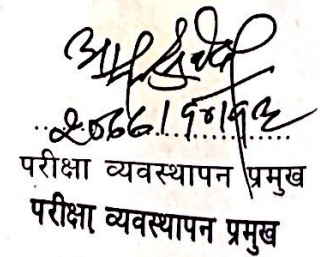 २०७७।१०।१३
परीक्षा व्यवस्थापन प्रमुख
परीक्षा व्यवस्थापन प्रमुख